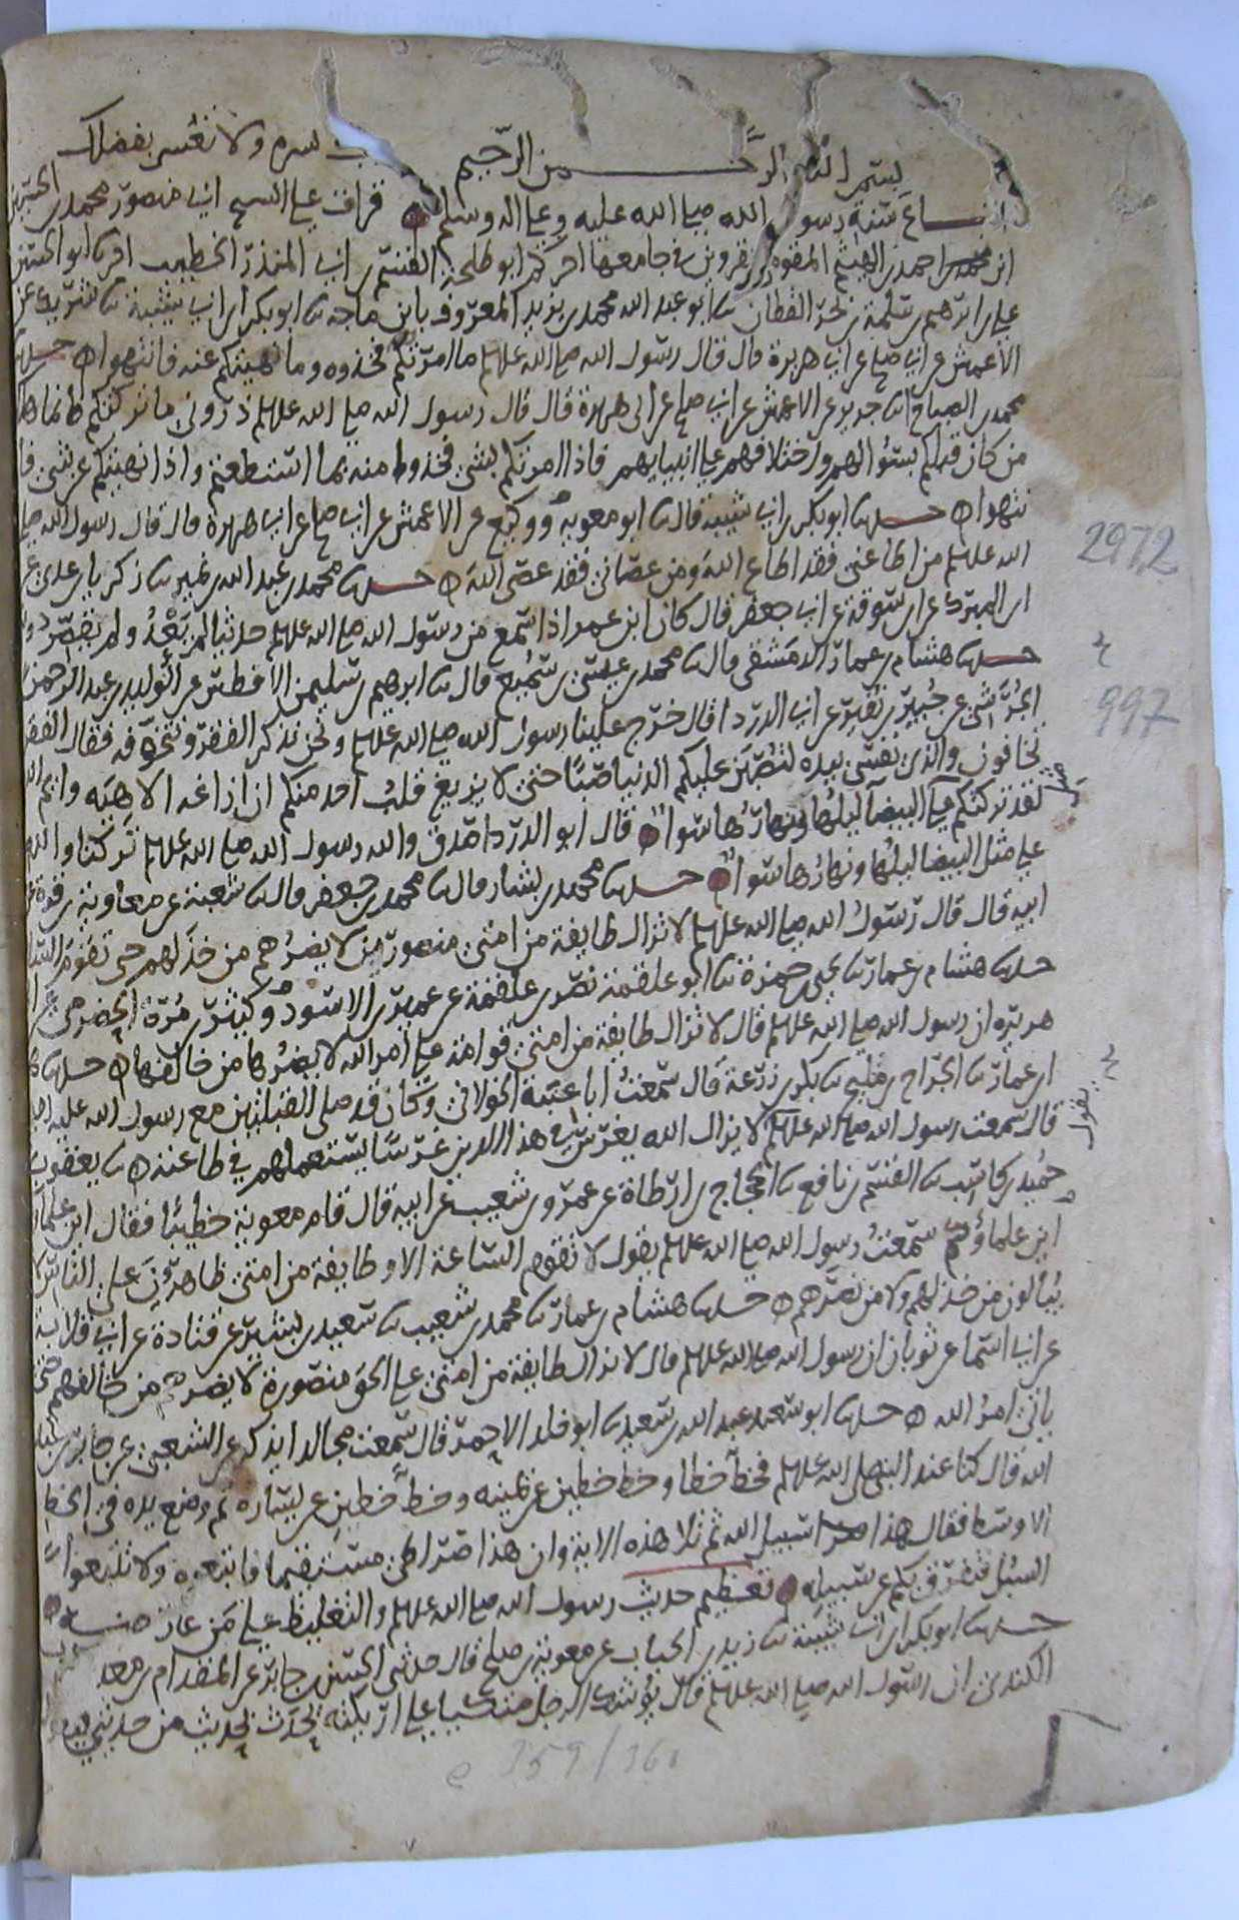 بسم الله الرحمن الرحيم رب يسره ولا تعسر بفضلك
اتباع سنة رسول الله صلى الله عليه وعلى اله وسلم قرات على الشيخ ابي منصور محمد بن الحسين
ابن احمد بن الهيثم المقومي بقزوين في جامعها اخبركم ابو طلحة القسم بن ابي المنذر الخطيب اخبرنا ابو الحسن
علي بن ابرهيم بن سلمة بن بحر القطان ثنا ابو عبد الله محمد بن يزيد المعروف بابن ماجه ثنا ابو بكر بن ابي شيبة ثنا شريك عن
الاعمش عن ابي صلح عن ابي هريرة قال قال رسول الله صلى الله عليه وسلم ما امرتكم فخذوه وما نهيتكم عنه فانتهوا حدثنا
محمد بن الصباح انا جرير عن الاعمش عن ابي صلح عن ابي هريرة قال قال رسول الله صلى الله عليه وسلم ذروني ما تركتكم فانما هلك
من كان قبلكم بسؤالهم واختلافهم على انبيايهم فاذا امرتكم بشي فخذوا منه ما استطعتم واذا نهيتكم عن شي فا
نتهوا حدثنا ابو بكر بن ابي شيبة قال ثنا ابو معوية ووكيع عن الاعمش عن ابي صلح عن ابي هريرة قال قال رسول الله صلى
الله عليه وسلم من اطاعني فقد اطاع الله ومن عصاني فقد عصى الله حدثنا محمد بن عبد الله بن نمير ثنا زكريا بن عدي عن
ابن المبرك عن ابن سوقة عن ابي جعفر قال كان ابن عمر اذا سمع من رسول الله صلى الله عليه وسلم حديثا لم يعده ولم يقصر دونه
حدثنا هشام بن عمار الدمشقي قال ثنا محمد بن عيسى بن سميع قال ثنا ابرهيم بن سليمن الافطس عن الوليد بن عبد الرحمن
الجرشي عن جبير بن نفير عن ابي الدردا قال خرج علينا رسول الله صلى الله عليه وسلم ونحن نذكر الفقر ونتخوفه فقال الفقر
تخافون والذي نفسي بيده لتصبن عليكم الدنيا صبا حتى لا يزيغ قلب احد منكم ان ازاغه الا هيه وايم الله
لقد تركتكم على البيضا ليلها ونهارها سوا قال ابو الدردا صدق والله رسول الله صلى الله عليه وسلم تركنا والله
على مثل البيضا ليلها ونهارها سوا حدثنا محمد بن بشار قال ثنا محمد بن جعفر قال ثنا شعبة عن معاوية بن قرة عن
ابيه قال قال رسول الله صلى الله عليه وسلم لا تزال طايفة من امتي منصورين لا يضرهم من خذلهم حتى تقوم الساعة
حدثنا هشام بن عمار ثنا يحيى بن حمزة ثنا ابو علقمة نصر بن علقمة عن عمير بن الاسود وكثير بن مرة الحضرمي عن ابي
هريرة ان رسول الله صلى الله عليه وسلم قال لا تزال طايفة من امتي قوامة على امر الله لا يضرها من خالفها حدثنا هشام
ابن عمار ثنا الجراح بن مليح ثنا بكر بن زرعة قال سمعت ابا عنبة الخولاني وكان قد صلى القبلتين مع رسول الله صلى الله عليه
قال سمعت رسول الله صلى الله عليه وسلم يقول لا يزال الله يغرس في هذا الدين غرسا يستعملهم في طاعته ثنا يعقوب بن
حميد بن كاسب ثنا القسم بن نافع ثنا الحجاج بن ارطاة عن عمرو بن شعيب عن ابيه قال قام معوية خطيبا فقال اين علماؤكم
اين علماؤكم سمعت رسول الله صلى الله عليه وسلم يقول لا تقوم الساعة الا وطايفة من امتي ظاهرون على الناس لا
يبالون من خذلهم ولا من نصرهم حدثنا هشام بن عمار ثنا محمد بن شعيب ثنا سعيد بن بشير عن قتادة عن ابي قلابة
عن ابي اسما عن ثوبان ان رسول الله صلى الله عليه وسلم قال لا تزال طايفة من امتي على الحق منصورة لا يضرهم من خالفهم حتى
ياتي امر الله حدثنا ابو سعيد عبد الله بن سعيد ثنا ابو خلد الاحمر قال سمعت مجالدا يذكر عن الشعبي عن جابر بن عبد
الله قال كنا عند النبي صلى الله عليه وسلم فخط خطا وخط خطين عن يمينه وخط خطين عن يساره ثم وضع يده في الخط
الاوسط فقال هذا سبيل الله ثم تلا هذه الاية وان هذا صراطي مستقيما فاتبعوه ولا تتبعوا
السبل فتفرق بكم عن سبيله تعظيم حديث رسول الله صلى الله عليه وسلم والتغليظ على من عارضه
حدثنا ابو بكر بن ابي شيبة ثنا زيد بن الحباب عن معوية بن صلح قال حدثني الحسن بن جابر عن المقدام بن معد
الكندي ان رسول الله صلى الله عليه وسلم قال يوشك الرجل متكيا على اريكته يحدث بحديث من حديثي فيقول
2972
997
يقول
359/360